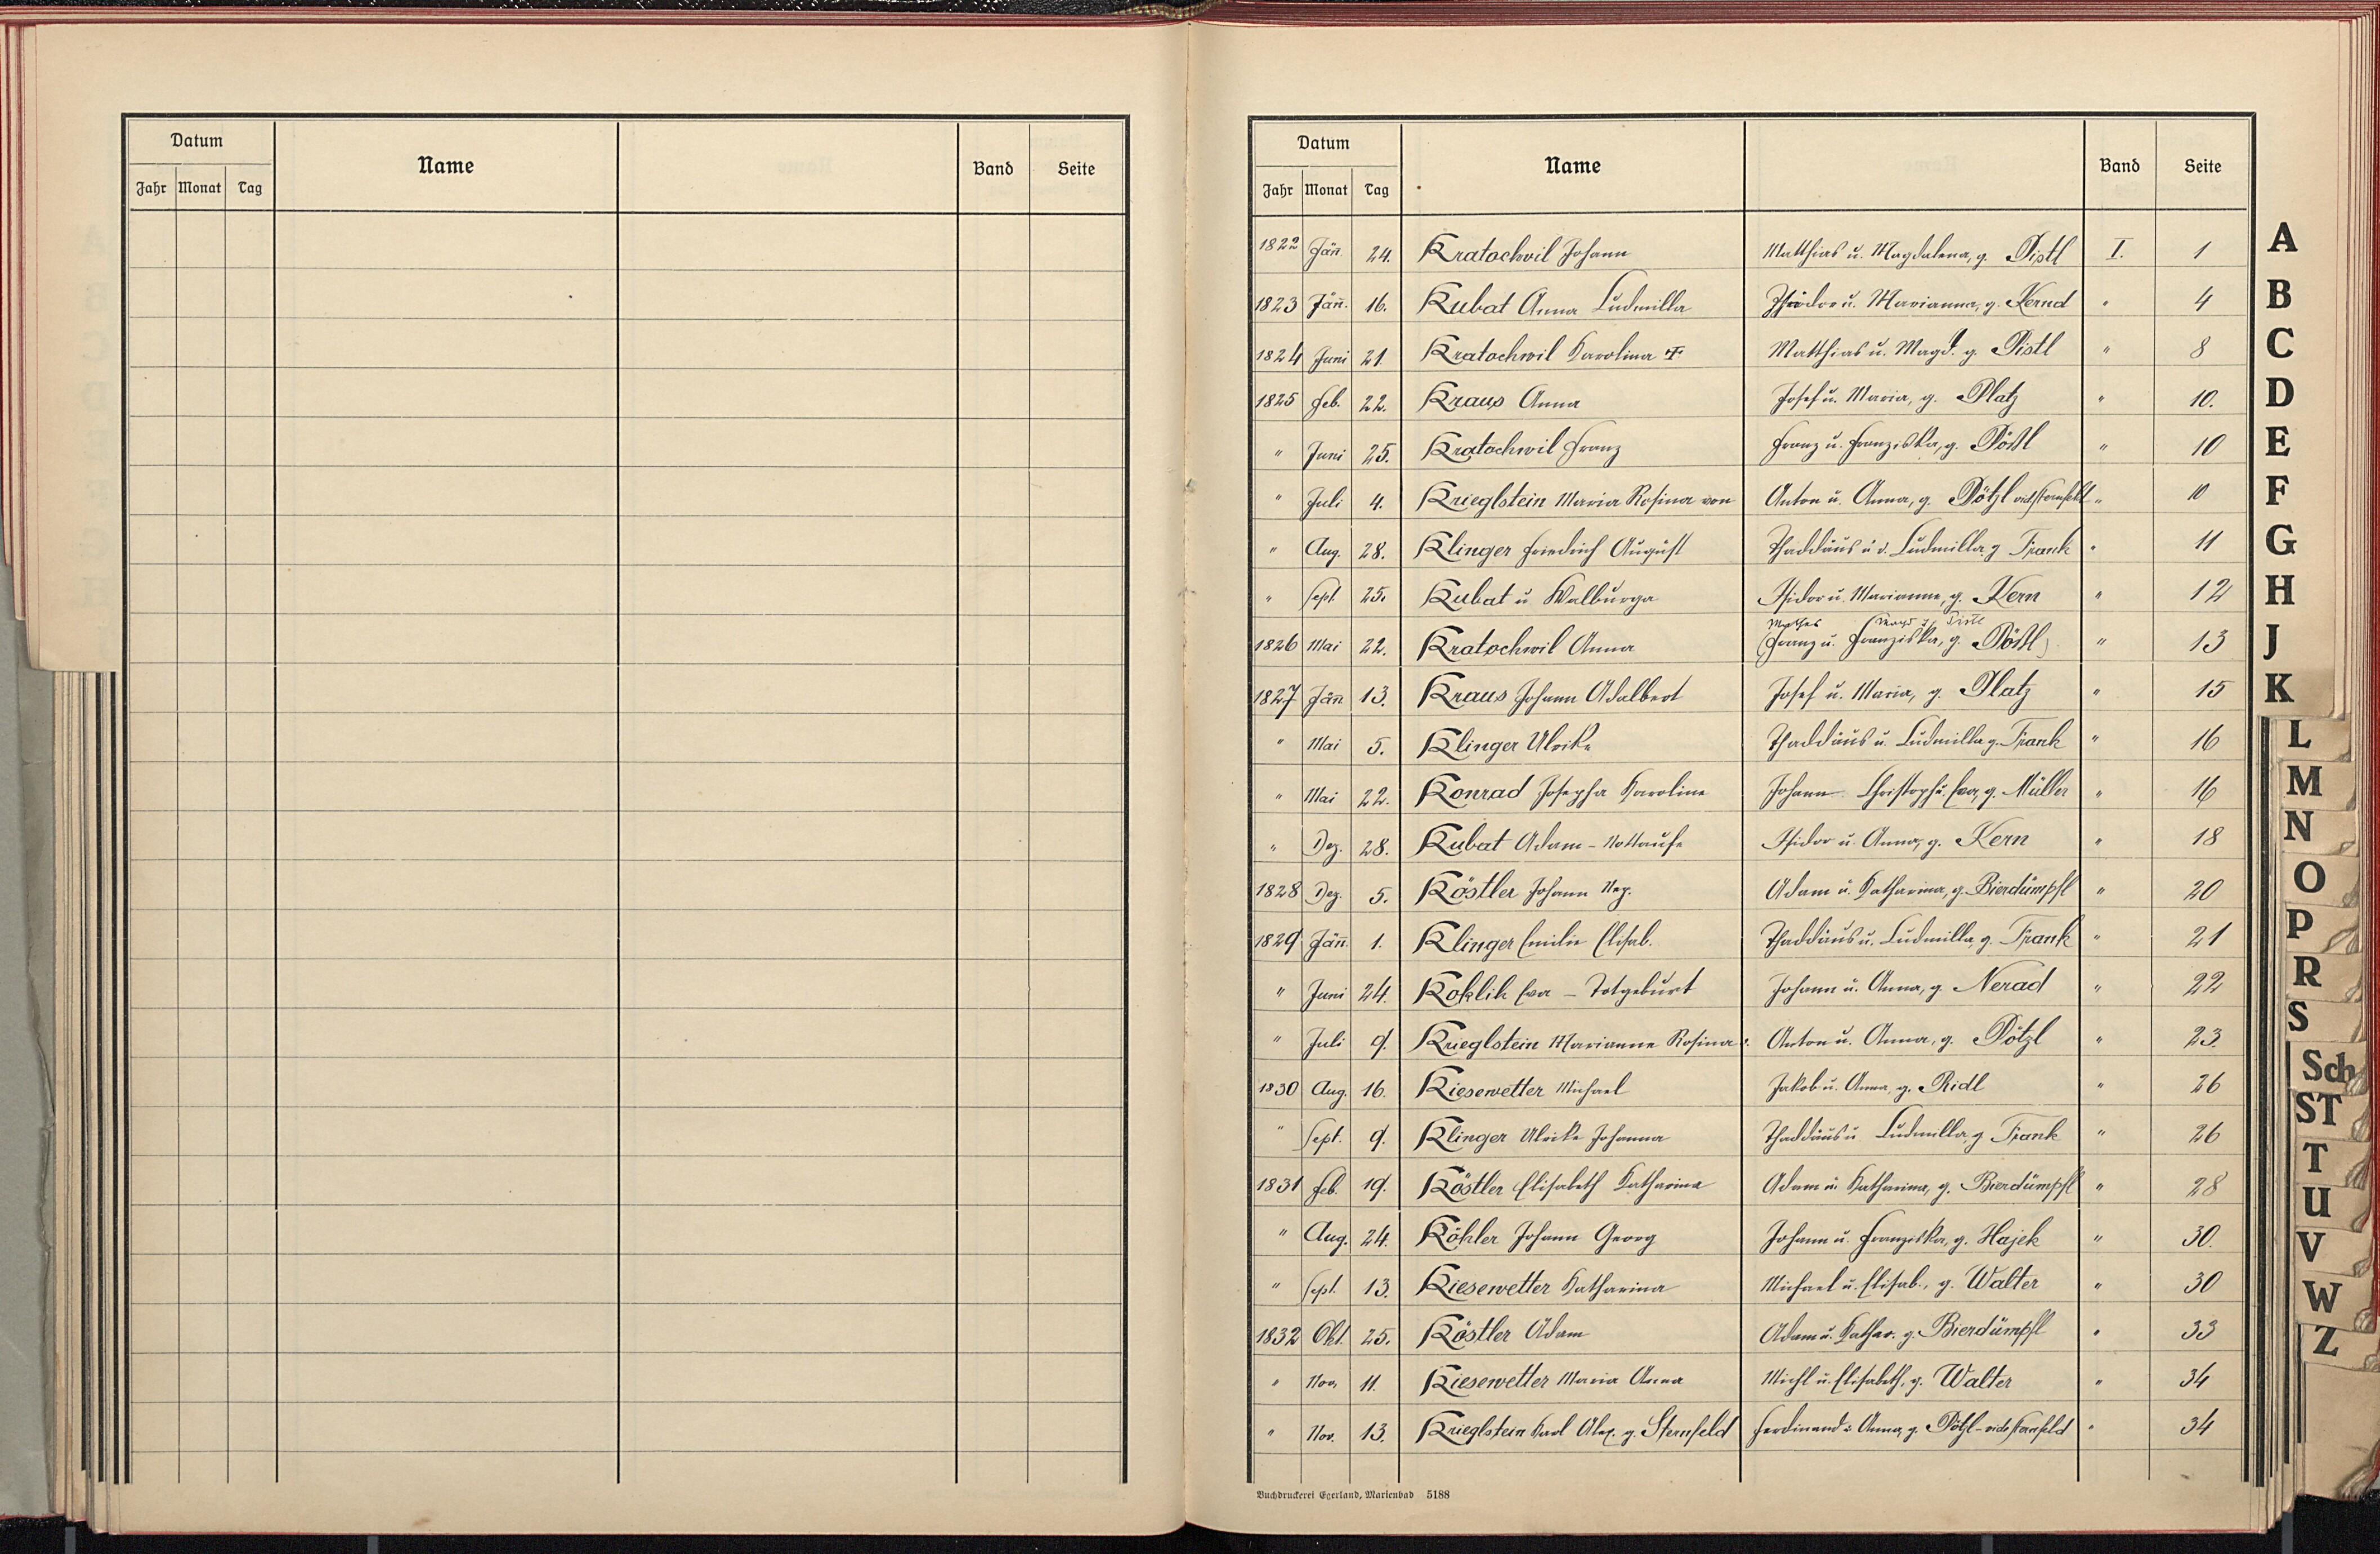 Datum Name Band Seite
Jahr Monat Tag
Datum Name Band Seite
Jahr Monat Tag
1822 Jän. 24. Kratochvil Johann Matthias u. Magdalena, g. Pistl I. 1
1823 Jän. 16. Kubat Anna Ludmilla u. Marianna, g. Kernd " 4
1824 Juni 21. Kratochwil Karolina Matthias u. Magd. g. Pistl " 8
1825 Feb. 22. Kraus Anna Josef u. Maria, g. Platz " 10.
" Juni 25. Kratochwil Franz Franz u. Franziska, g. Pöstl " 10
" Juli 4. Krieglstein Maria Rosina von Anton u. Anna, g. Pötzl " 10
" Aug. 28. Klinger Friedrich August Thaddäus u. Ludmilla g. Frank " 11
" Sept. 25. Kubat Walburga Isidor u. Marianne, g. Kern " 12
Mathes Magd g. Pistl
1826 Mai 22. Kratochwil Anna (Franz u. Franziska, g. Pöstl) " 13
1827 Jän 13. Kraus Johann Adalbert Josef u. Maria, g. Platz " 15
" Mai 5. Klinger Ulrike Thaddäus u. Ludmilla g. Frank " 16
" Mai 22. Konrad Josepha Karoline Johann Christoph u. Eva, g. Müller " 16
" Dez. 28. Kubat Adam - Nottaufe Isidor u. Anna, g. Kern " 18
1828 Dez. 5. Köstler Johann Nep. Adam u. Katharina, g. Bierdümpfl " 20
1829 Jän. 1. Klinger Emilie Elisab. Thaddäus u. Ludmilla, g. Frank " 21
" Juni 24. Koklik Eva - Totgeburt Johann u. Anna, g. Nerad " 22
" Juli 9. Krieglstein Marianne Rosina Anton u. Anna, g. Pötzl " 23.
1830 Aug. 16. Kiesewetter Michael Jakob u. Anna, g. Ridl " 26
" Sept. 9. Klinger Ulrike Johanna Thaddäus u. Ludmilla, g. Frank " 26
1831 Feb. 19. Köstler Elisabeth Katharina Adam u. Katharina, g. Bierdümpfl " 28
" Aug. 24. Köhler Johann Georg Johann u. Franziska, g. Hajek " 30.
" Sept. 13. Kiesewetter Katharina Michael u. Elisab., g. Walter " 30
1832 Okt. 25. Köstler Adam Adam u. Kathar. g. Bierdümpfl " 33
" Nov. 11. Kiesewetter Maria Anna Michl u. Elisabeth, g. Walter " 34
" Nov. 13. Krieglstein Karl Alex. g. Sternfeld Ferdinand u. Anna, g. Pötzl - vide Sternfeld " 34
Buchdruckerei Egerland, Marienbad 5188
A
B
C
D
E
F
G
H
J
K
L
M
N
O
P
R
S
Sch
ST
T
U
V
W
Z